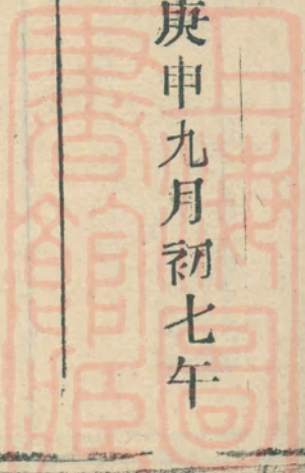 庚申九月初七午